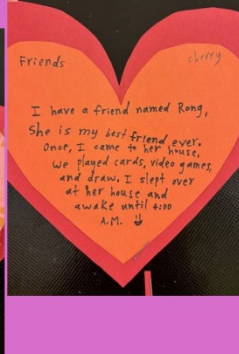 Friends
cherry
I have a friend named Rong,
She is my best friend ever.
Once, I came to her house,
we played cards, video games,
and draw. I slept over
at her house and
awake until 4:00
A.M.